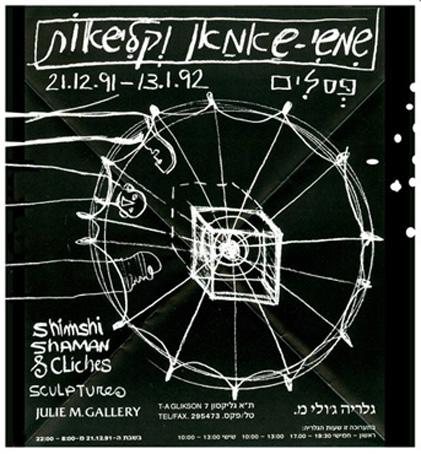 שמשי-שאמאן וקלישאות
21.12.91-13.1.92 פסלים
Shimshi
SHAMAN
& Cliches
SCULPTURES
JULIE M. GALLERY
T-A GLIKSON 7 ת"א גליקסון
TEL/FAX. 295473 .טל/פקס
גלריה ג'ולי מ.
בתערוכה זו שעות הגלריה:
ראשון - חמישי 19:30 - 17.00 13:00 - 10:00 שישי 13:00 - 10:00 בשבת ה-21.12.91 מ-8:00 - 22:00